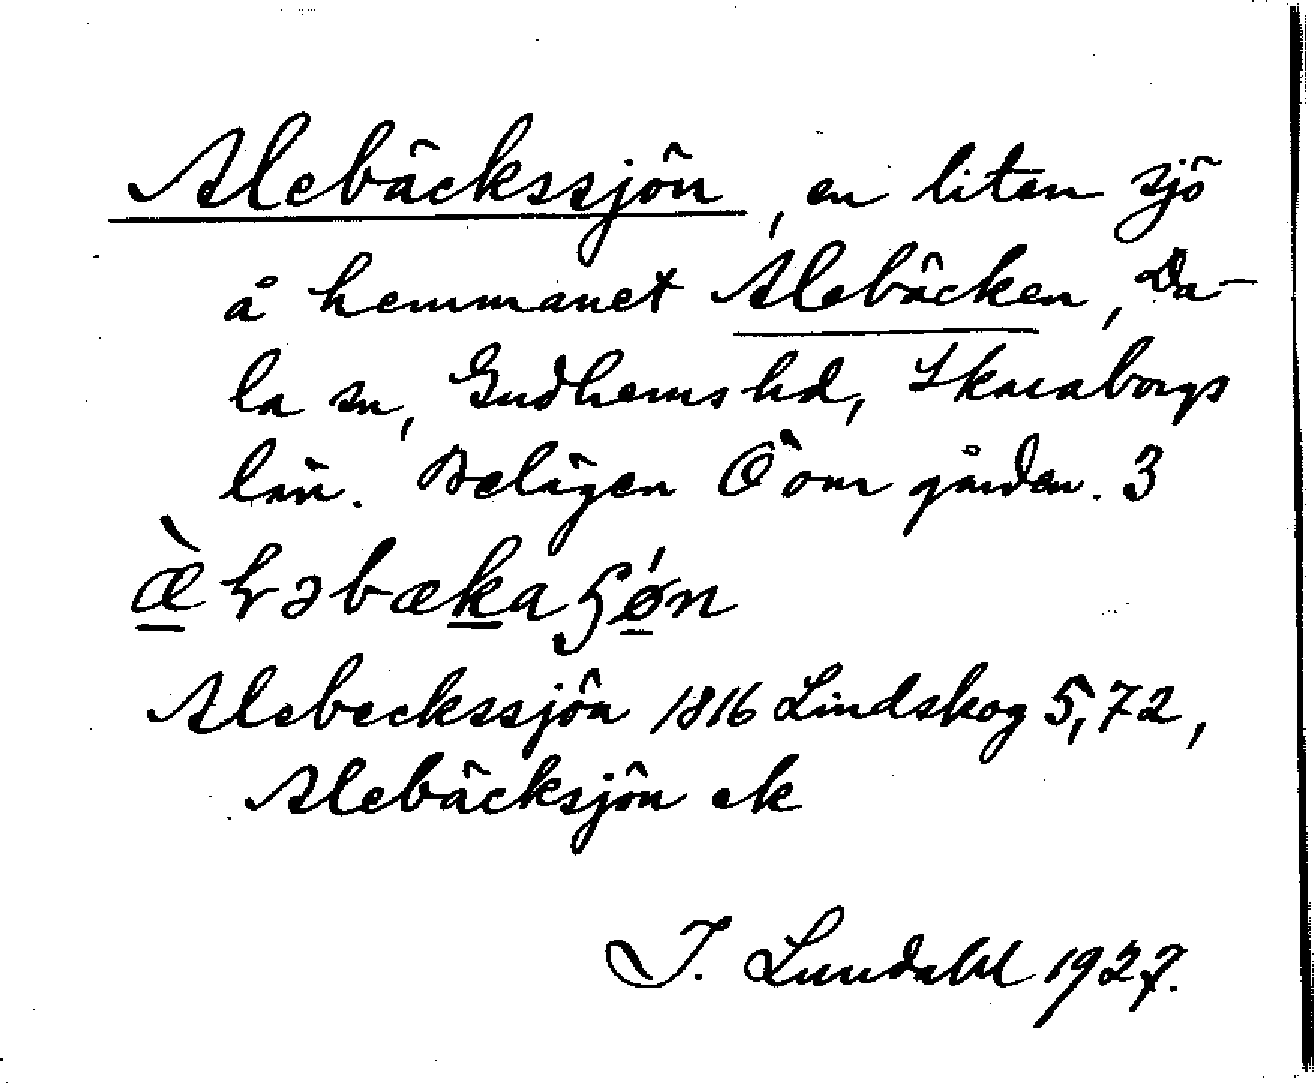 Alebäckssjön, en liten sjö
å hemmanet Alebäcken, Da-
la sn, Gudhems hd, Skaraborgs
län. Belägen Ö om gården. 3
Alebeckssjön 1816 Lindskog 5,72,
Alebäcksjön ek
I. Lundahl 1927.